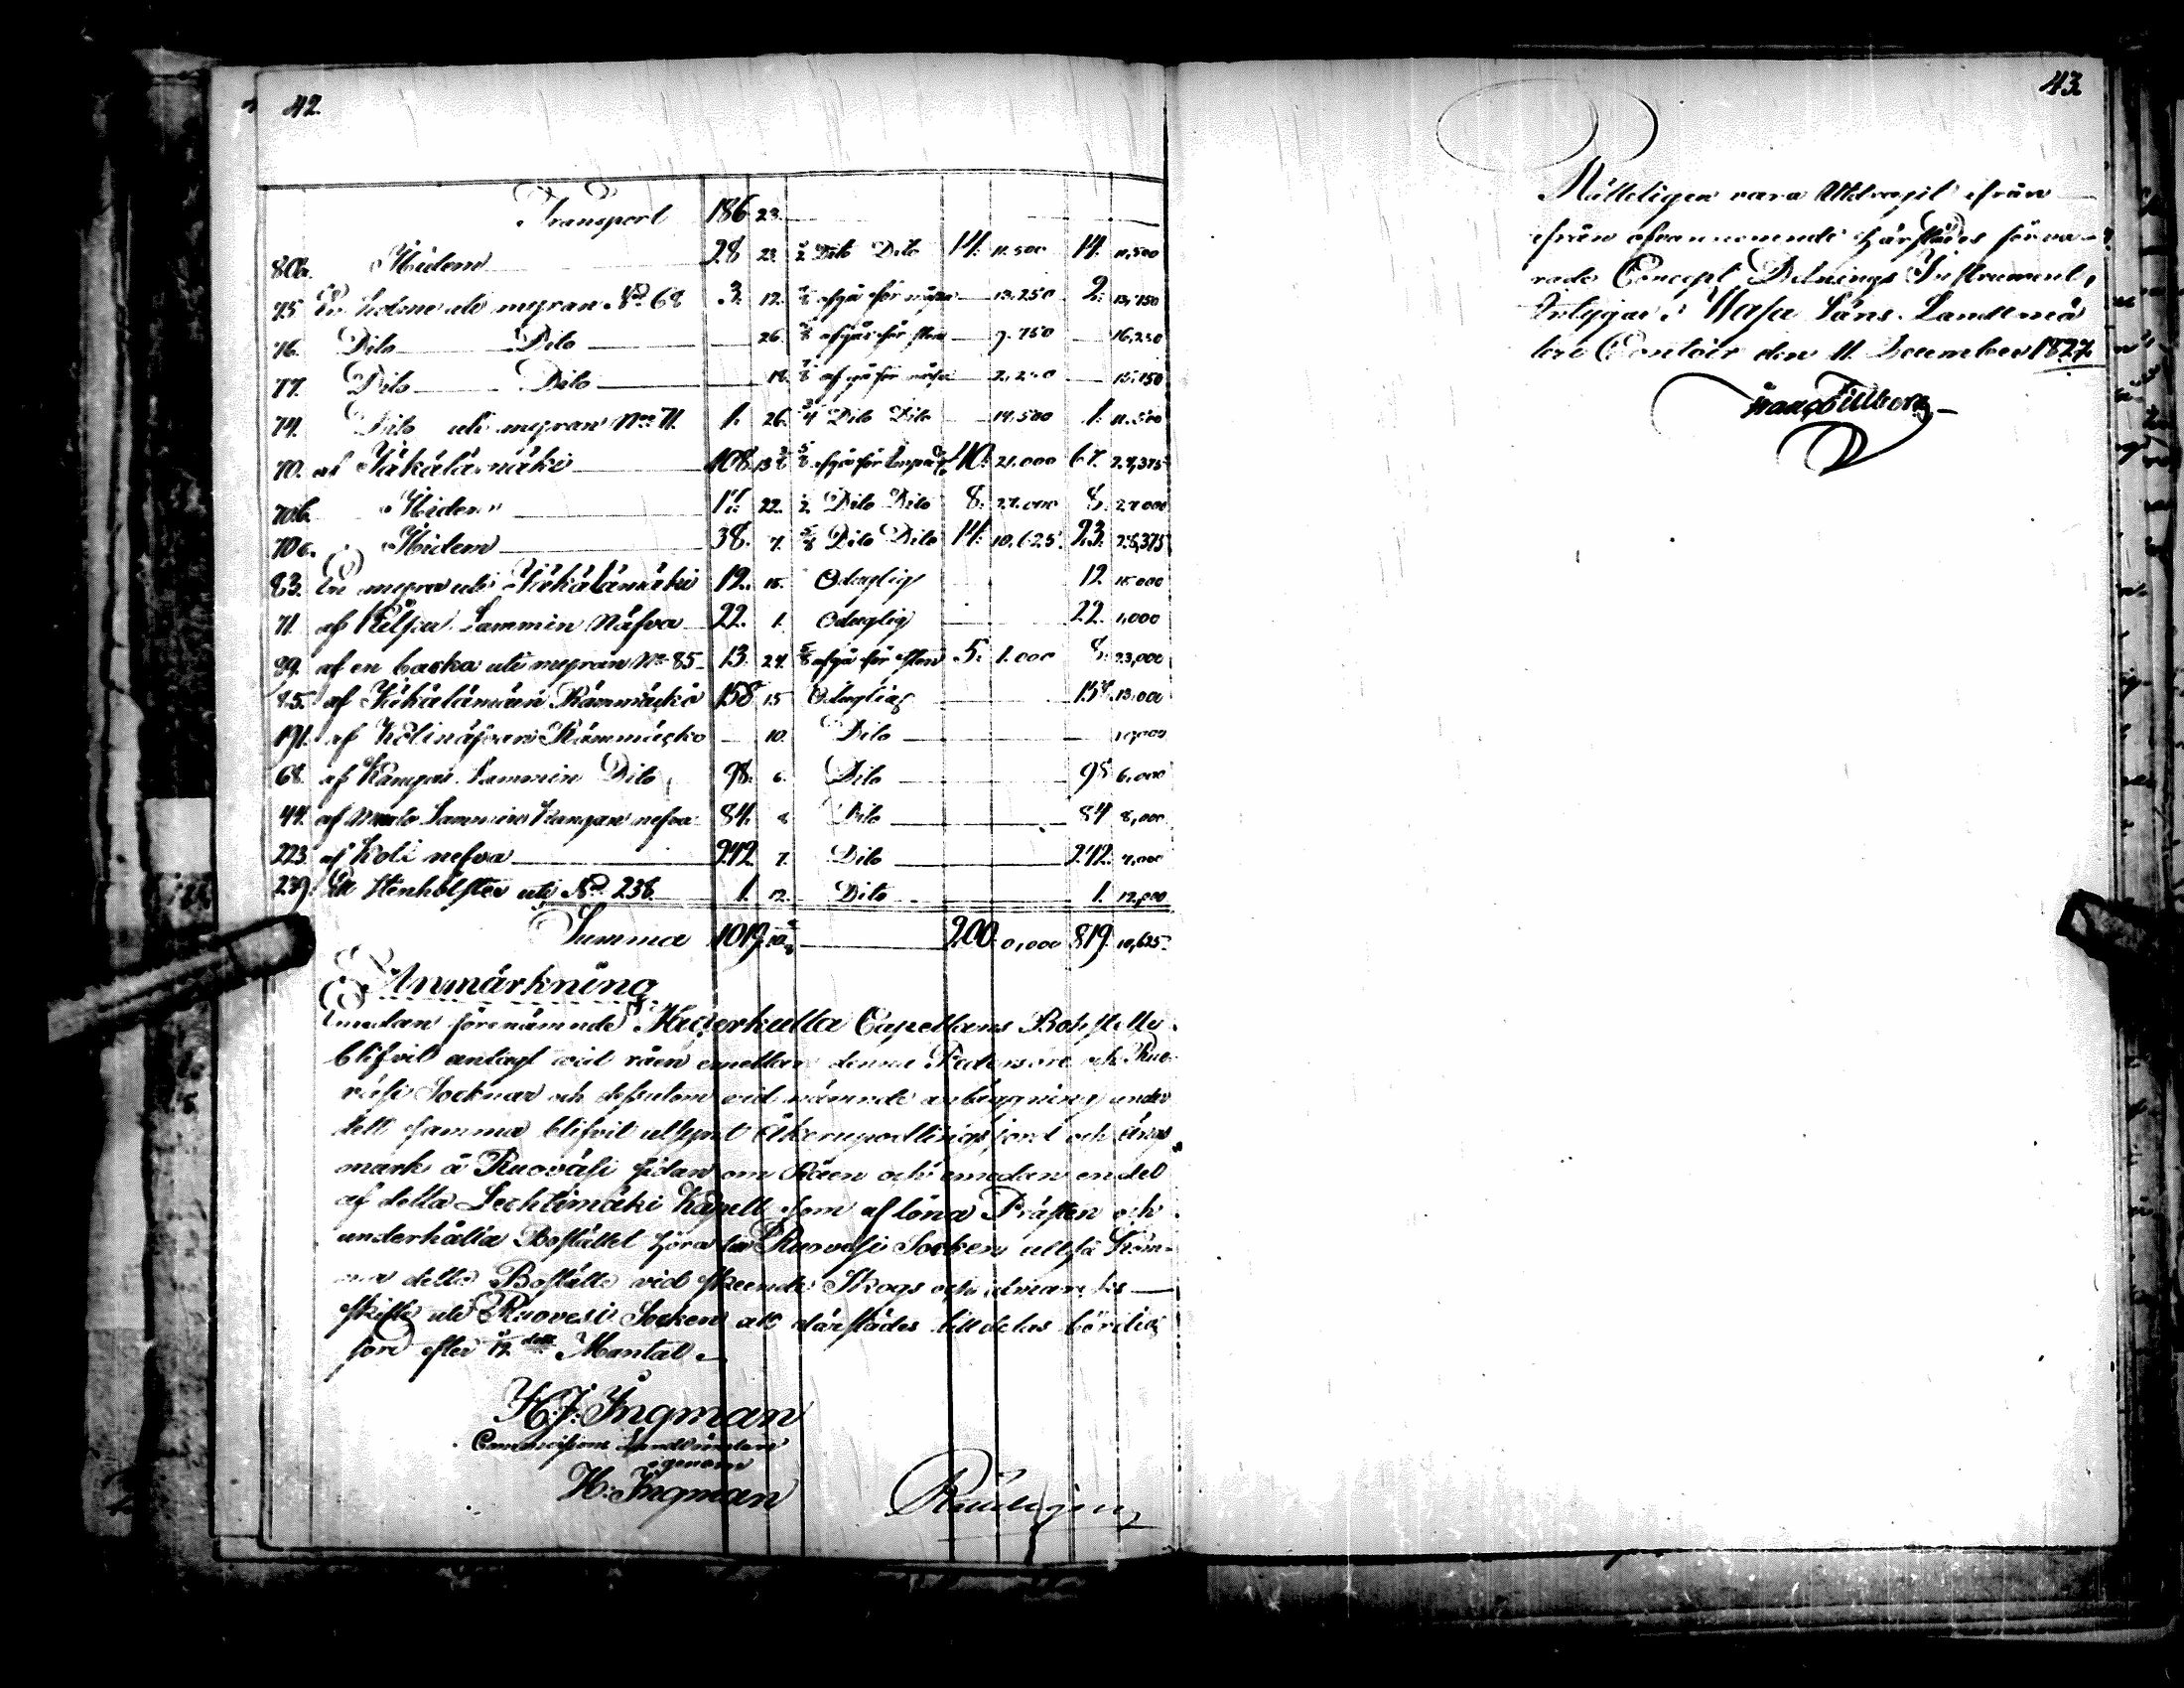 42.
Transport 186 23.
80b. Ibidem 28 23. ½ Dito Dito 14. 11.500 14. 11,500
75 En holme uti myran No 68 3. 12. afgå för 13.250 2. 13,750
76. Dito Dito 26. afgår för sten 9.750 16,250
77. Dito Dito 18. afgå för 2,250 15,750
74. Dito uti myran No 71. 1. 26. ¾ Dito Dito 14,500 1. 11.500
70. af Jäkälämäki 108. 13 afgå för Imped. 40. 21.000 67. 24,375
70b. Ibidem 17. 22. ½ Dito Dito 8. 27.000 8. 27.000
70c. Ibidem 38. 7. Dito Dito 14. 10.625. 23. 28,375
83. En myra uti Jäkälämäki 12. 15. Oduglig 12 15.000
71. af Lammin Näfva 22. 1. Oduglig 22. 1,000
89. af en backa uti myran No 85 13. 24. ⅝ afgå för sten 5. 1.000 8. 23,000
85. af Jäkälämäen Rämmäckö 158 15 Odugliga 158. 15.000
191. af Kolinäfvan Rämmäckö 10. Dito 10,000
68. af Kangas Lammin Dito 98. 6. Dito 98 6,000
44. af Musta Lammin Kangan nefva 84. 8 Dito 84 8,000
223. af Koli nefva 242 7. Dito 242. 7,000
239. Ett Stenholster uti No 238. 1. 12. Dito 1. 12,000
Summa 1019. 10 200. 0,000 819. 10,625.
Anmärkning
Emedan förenämnde Capellans Boställe
blifvit anlagt vid råen emellan denna Pedersöre och Ruo-
väsi Socknar och dessutom vid nämnde anbyggning under
dett samma blifvit utsynt Åkerupodlings jord och Ängs
mark å Ruoväsi sidan om Råen och emedan en del
af detta Lechtimäki Kapell som aflöna Prästen och
underhålla Bostället höra till Ruovesi Socken altså Kom-
ma detta Boställe vid skeende Skogs och utmarks
skifte uti Ruovesi Socken att därstädes tilldelas börelig
jord efter Mantal
H.J. Ingman
Commissions Landtmätare
genom
H. Ingman
Riktigen
43
Rätteligen vara Utdragit ifrån
ifrån ofvannämnde härstädes förva-
rade Concept Delnings Instrument,
Intygar i Wasa Läns Landtmä
teri Contoir den 11. December 1827.